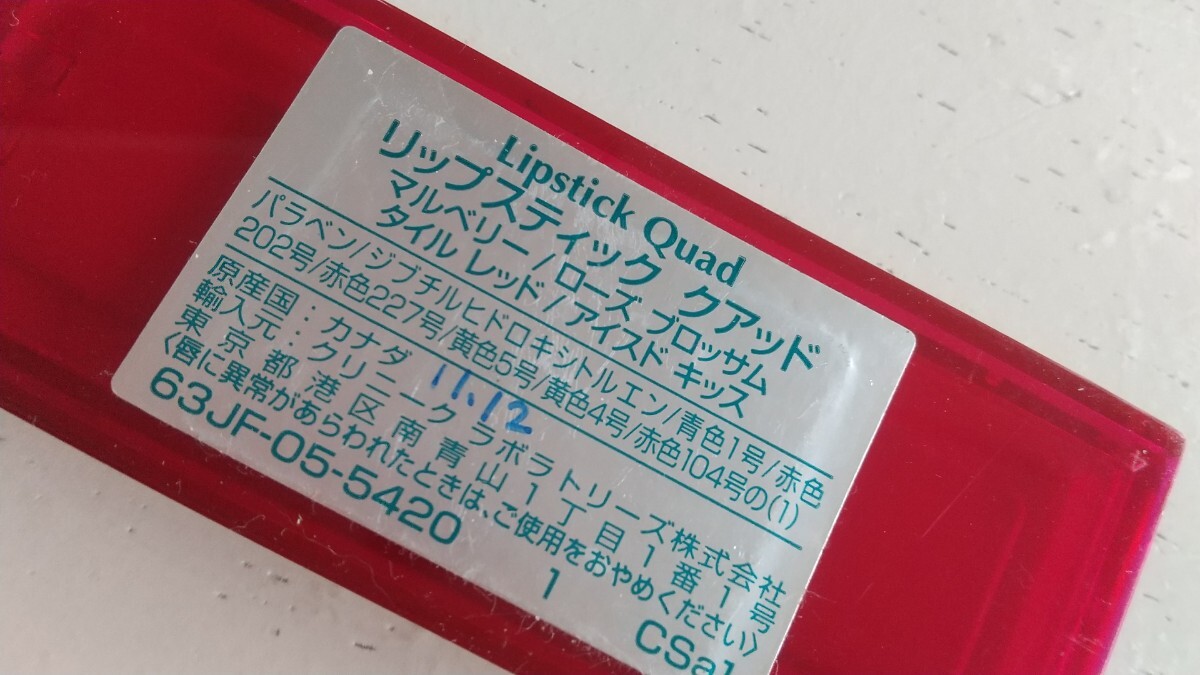 Lipstick Quad
リップスティック クアッド
マルベリー/ローズ ブロッサム
タイル レッド/アイスド キッス
パラベン/ジブチルヒドロキシトルエン/青色1号/赤色
202号/赤色227号/黄色5号/黄色4号/赤色104号の(1)
原産国:カナダ 11.12
輸入元:クリニーク ラボラトリーズ株式会社
東京都港区南青山1丁目1番1号
〈唇に異常があらわれたときは、ご使用をおやめください〉
63JF-05-5420 1 CSa1
4